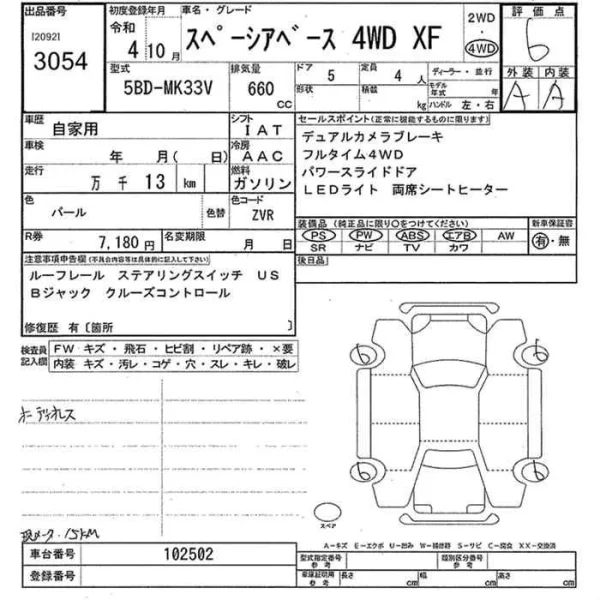 出品番号
I20921
3054
初度登録年月
令和
4年10月
車名・グレード
スペーシアベース 4WD XF
2WD
・
4WD
評価点
6
外装 内装
A A
型式
5BD-MK33V
排気量
660
cc
ドア
5
形状
定員
4人
積載
kg
ディーラー・並行
モデル年式 年
ハンドル 左・右
車歴
自家用
シフト
IAT
車検
年 月( 日)
冷房
AAC
走行
万 千 13 km
燃料
ガソリン
色
パール
色替
色コード
ZVR
R券
7,180円
名変期限
月 日
セールスポイント(正常に機能するものに限ります)
デュアルカメラブレーキ
フルタイム4WD
パワースライドドア
LEDライト 両席シートヒーター
装備品(純正品に限り○をつけてください)
PS PW ABS エアB AW
SR ナビ TV カワ
新車保証書
有・無
後日品
注意事項申告欄(不具合内容等は具体的に記入して下さい)
ルーフレール ステアリングスイッチ US
Bジャック クルーズコントロール
修復歴 有〔箇所 〕
検査員記入欄
FW キズ・飛石・ヒビ割・リペア跡・×要
内装 キズ・汚レ・コゲ・穴・スレ・キレ・破レ
オーディオレス
現メーター 15KM
6 6
6 6
スペア
A-キズ E-エクボ U-凹み W-補修跡 S-サビ C-腐食 XX-交換済
車台番号
102502
登録番号
型式指定番号
参考
類別区分番号
参考
車庫証明用
参考
長さ cm
幅 cm
高さ cm